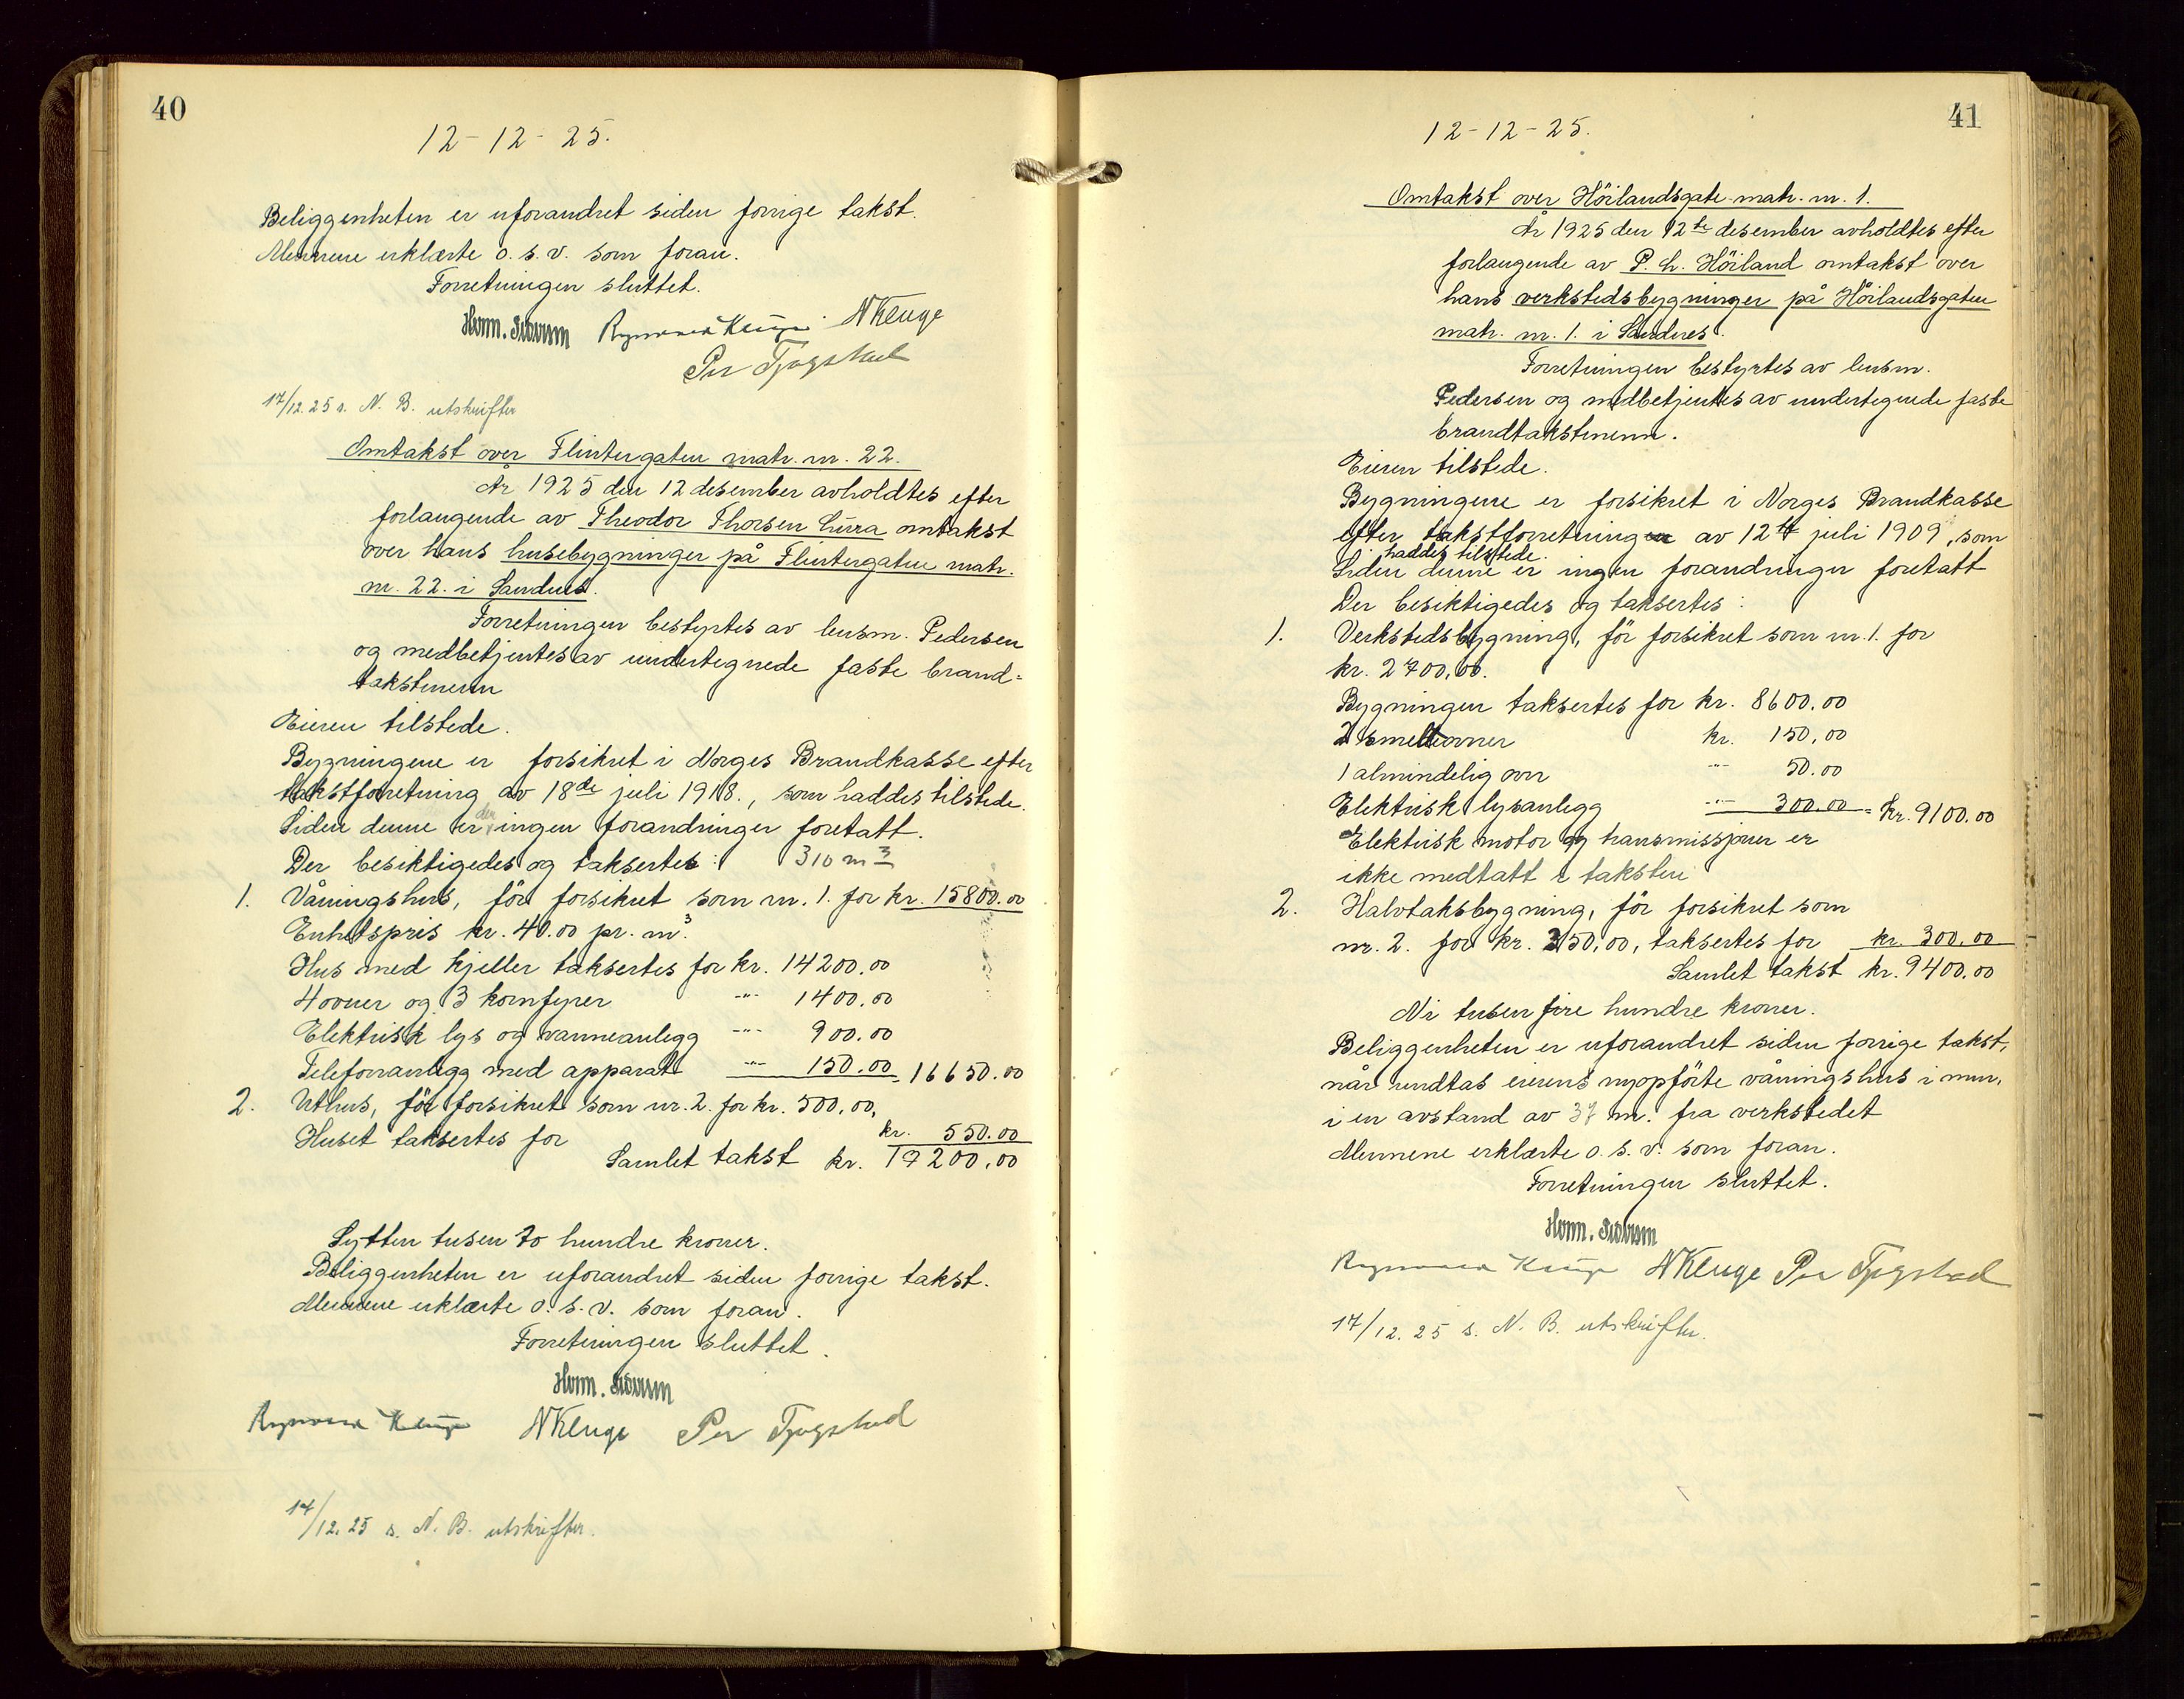 40
12-12-25.
Beliggenheten er uforandret siden forrige takst.
Mennene erklærte o. s. v. som foran.
Forretningen sluttet.
NKluge
Per Tjøgstad
17/12.25 s. N. B. utskrifter
Omtakst over Flintergaten matr. nr. 22.
År 1925 den 12 desember avholdtes efter
forlangende av Theodor Thorsen Lura omtakst
over hans husebygninger på Flintergaten matr.
nr. 22. i Sandnes.
Forretningen bestyrtes av lensm. Pedersen
og medbetjentes av undertegnede faste brand-
takstmenn
Eieren tilstede.
Bygningene er forsikret i Norges Brandkasse efter
takstforretning av 18de juli 1918., som haddes tilstede.
Siden denne er der ingen forandringer foretatt.
Der besiktigedes og taksertes: 310 m3
1. Våningshus, för forsikret som nr. 1. for kr. 15800.00
Enhetspris kr. 40.00 pr. m3.
Hus med kjeller taksertes for kr. 14200.00
4 ovner og 3 komfyrer -"- 1400.00
Elektrisk lys og varmeanlegg -"- 900.00
Telefonanlegg med apparat -"- 150.00 = 16650.00
2. Uthus, för forsikret som nr. 2. for kr. 500,00,
Huset taksertes for kr. 550.00
Samlet takst kr. 17200,00
Sytten tusen to hundre kroner.
Beliggenheten er uforandret siden forrige takst.
Mennene erklærte o. s. v. som foran.
Forretningen sluttet.
NKluge Per Tjøgstad
17/12.25 s. N. B. utskrifter.
41
12-12-25.
Omtakst over Höilandsgate matr. nr. 1.
År 1925 den 12te desember avholdtes efter
forlangende av P. L. Höiland omtakst over
hans verkstedsbygninger på Höilandsgaten
matr. nr. 1. i Sandnes.
Forretningen bestyrtes av lensm.
Pedersen og medbetjentes av undertegnede faste
brandtakstmenn.
Eieren tilstede.
Bygningene er forsikret i Norges Brandkasse
efter takstforretning av 12te juli 1909, som
haddes tilstede.
Siden denne er ingen forandringer foretatt
Der besiktigedes og taksertes:
1. Verkstedsbygning, för forsikret som nr. 1. for
kr. 2700,00.
Bygningen taksertes for kr. 8600.00
2 smelteovner kr. 150,00
1 almindelig ovn -"- 50.00
Elektrisk lysanlegg -"- 300.00 = Kr. 9100.00
Elektrisk motor og transmissjoner er
ikke medtatt i taksten
2. Halvtaksbygning, för forsikret som
nr. 2. for kr. 350,00, taksertes for kr. 300,00
Samlet takst kr. 9400.00
Ni tusen fire hundre kroner.
Beliggenheten er uforandret siden forrige takst,
når undtas eierens nyopförte våningshus i mur,
i en avstand av 37 m. fra verkstedet
Mennene erklærte o. s. v. som foran.
Forretningen sluttet.
NKluge Per Tjøgstad
17/12.25 s. N. B. utskrifter.